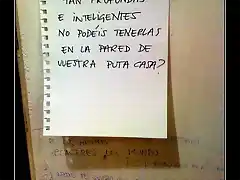 TAN PROFUNDAS
E INTELIGENTES
NO PODÉIS TENERLAS
EN LA PARED DE
VUESTRA PUTA CASA?
PLACERES DEL MUNDO